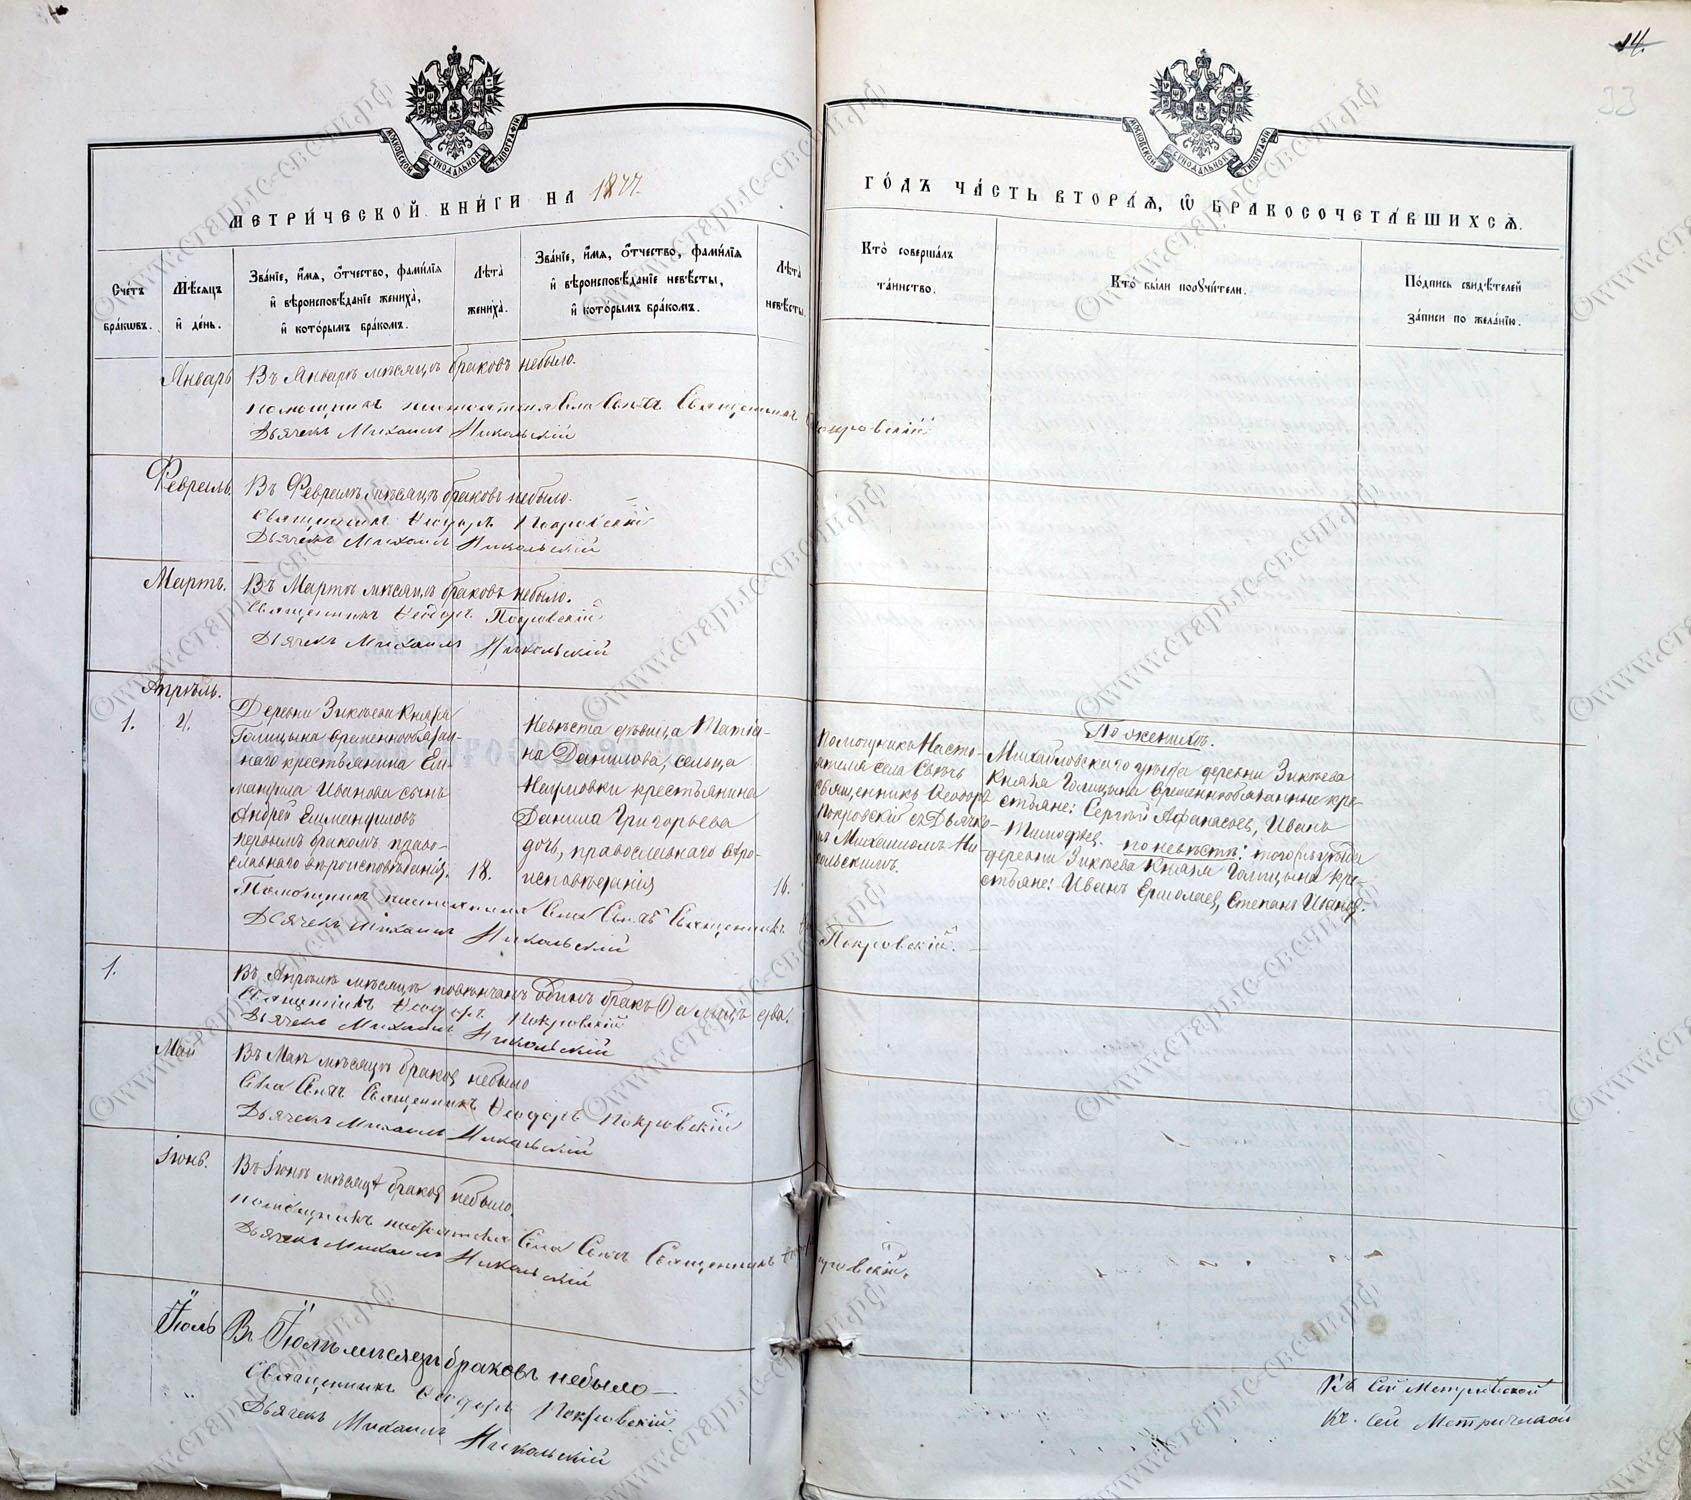 14.
33
МОСКОВСКОЙ СѴНОДАЛЬНОЙ ТИПОГРАФІИ
МОСКОВСКОЙ СѴНОДАЛЬНОЙ ТИПОГРАФІИ
МЕТРИ́ЧЕСКОЙ КНИ́ГИ НА 1877.
ГО́ДЪ ЧА́СТЬ ВТОРА́Ѧ, Ѽ БРАКОСОЧЕТА́ВШИХСѦ.
Сче́тъ
бра́кѡвъ.
Мѣ́сяцъ
и҆ де́нь.
Зва́нїе, и҆́мѧ, о҆́тчество, фами́лїѧ
и҆ вѣроисповѣ́данїе жениха̀,
и҆ кото́рымъ бра́комъ.
Лѣ́та
жениха̀.
Зва́нїе, и҆́мѧ, о҆́тчество, фами́лїѧ
и҆ вѣроисповѣ́данїе невѣ́сты,
и҆ кото́рымъ бра́комъ.
Лѣ́та
невѣ́сты.
Кто̀ соверша́лъ
та́инство.
Кто̀ бы́ли порꙋчи́тели.
По́дпись свидѣ́телей
за́писи по жела́нїю.
Январь
Въ Январѣ мѣсяцѣ браковъ небыло.
Помощникъ настоятеля Села Священникъ Покровскій
Дьячекъ Михаилъ Никольскій
Февраль.
Въ Февралѣ мѣсяцѣ браковъ небыло.
Священникъ Ѳеодоръ Покровскій
Дьячекъ Михаилъ Никольскій
Мартъ.
Въ Мартѣ мѣсяцѣ браковъ небыло.
Священникъ Ѳеодоръ Покровскій
Дьячекъ Михаилъ Никольскій
Апрѣль.
1.
Деревни Зикѣева Князя
Голицына временнообязан-
наго крестьянина Ем-
мануила Иванова сынъ
Андрей Еммануиловъ
первымъ бракомъ, право-
славнаго вѣроисповѣданія.
18.
Невѣста дѣвица Татья-
на Данилова, сельца
Наумовки крестьянина
Данила Григорьева
дочь, православнаго вѣро-
исповѣданія
16.
Помощникъ Насто-
ятеля села
священникъ Ѳеодоръ
Покровскій съ Дьячко-
мъ Михаиломъ Ни-
кольскимъ.
По женихѣ.
Михайловскаго уѣзда деревни Зикѣева
Князя Голицына временнообязанные кре-
стьяне: Сергѣй Афанасьевъ, Иванъ
Тимофеев. по невѣстѣ: тогожъ уѣзда
деревни Зикѣева Князя Голицына кре-
стьяне: Иванъ Ермолаев, Степанъ Иванов.
Помощникъ настоятеля Села Священникъ Покровскій.
Дьячекъ Михаилъ Никольскій
1.
Въ Апрѣлѣ мѣсяцѣ повѣнчанъ одинъ бракъ (1) а лицъ два.
Священникъ Ѳеодоръ Покровскій
Дьячекъ Михаилъ Никольскій
Май
Въ Маѣ мѣсяцѣ браков небыло
Села Священникъ Ѳеодоръ Покровскій
Дьячекъ Михаилъ Никольскій
Іюнь.
Въ Іюнѣ мѣсяцѣ браков небыло.
Помощникъ настоятеля Села Священникъ Покровскій.
Дьячекъ Михаилъ Никольскій
Іюль
Въ Іюлѣ мѣсяцѣ браковъ небыло
Священникъ Ѳеодоръ Покровскій.
Дьячекъ Михаилъ Никольскій
Къ сей Метрической
Къ. сей Метрической
©www.старыс-свсчи.рф